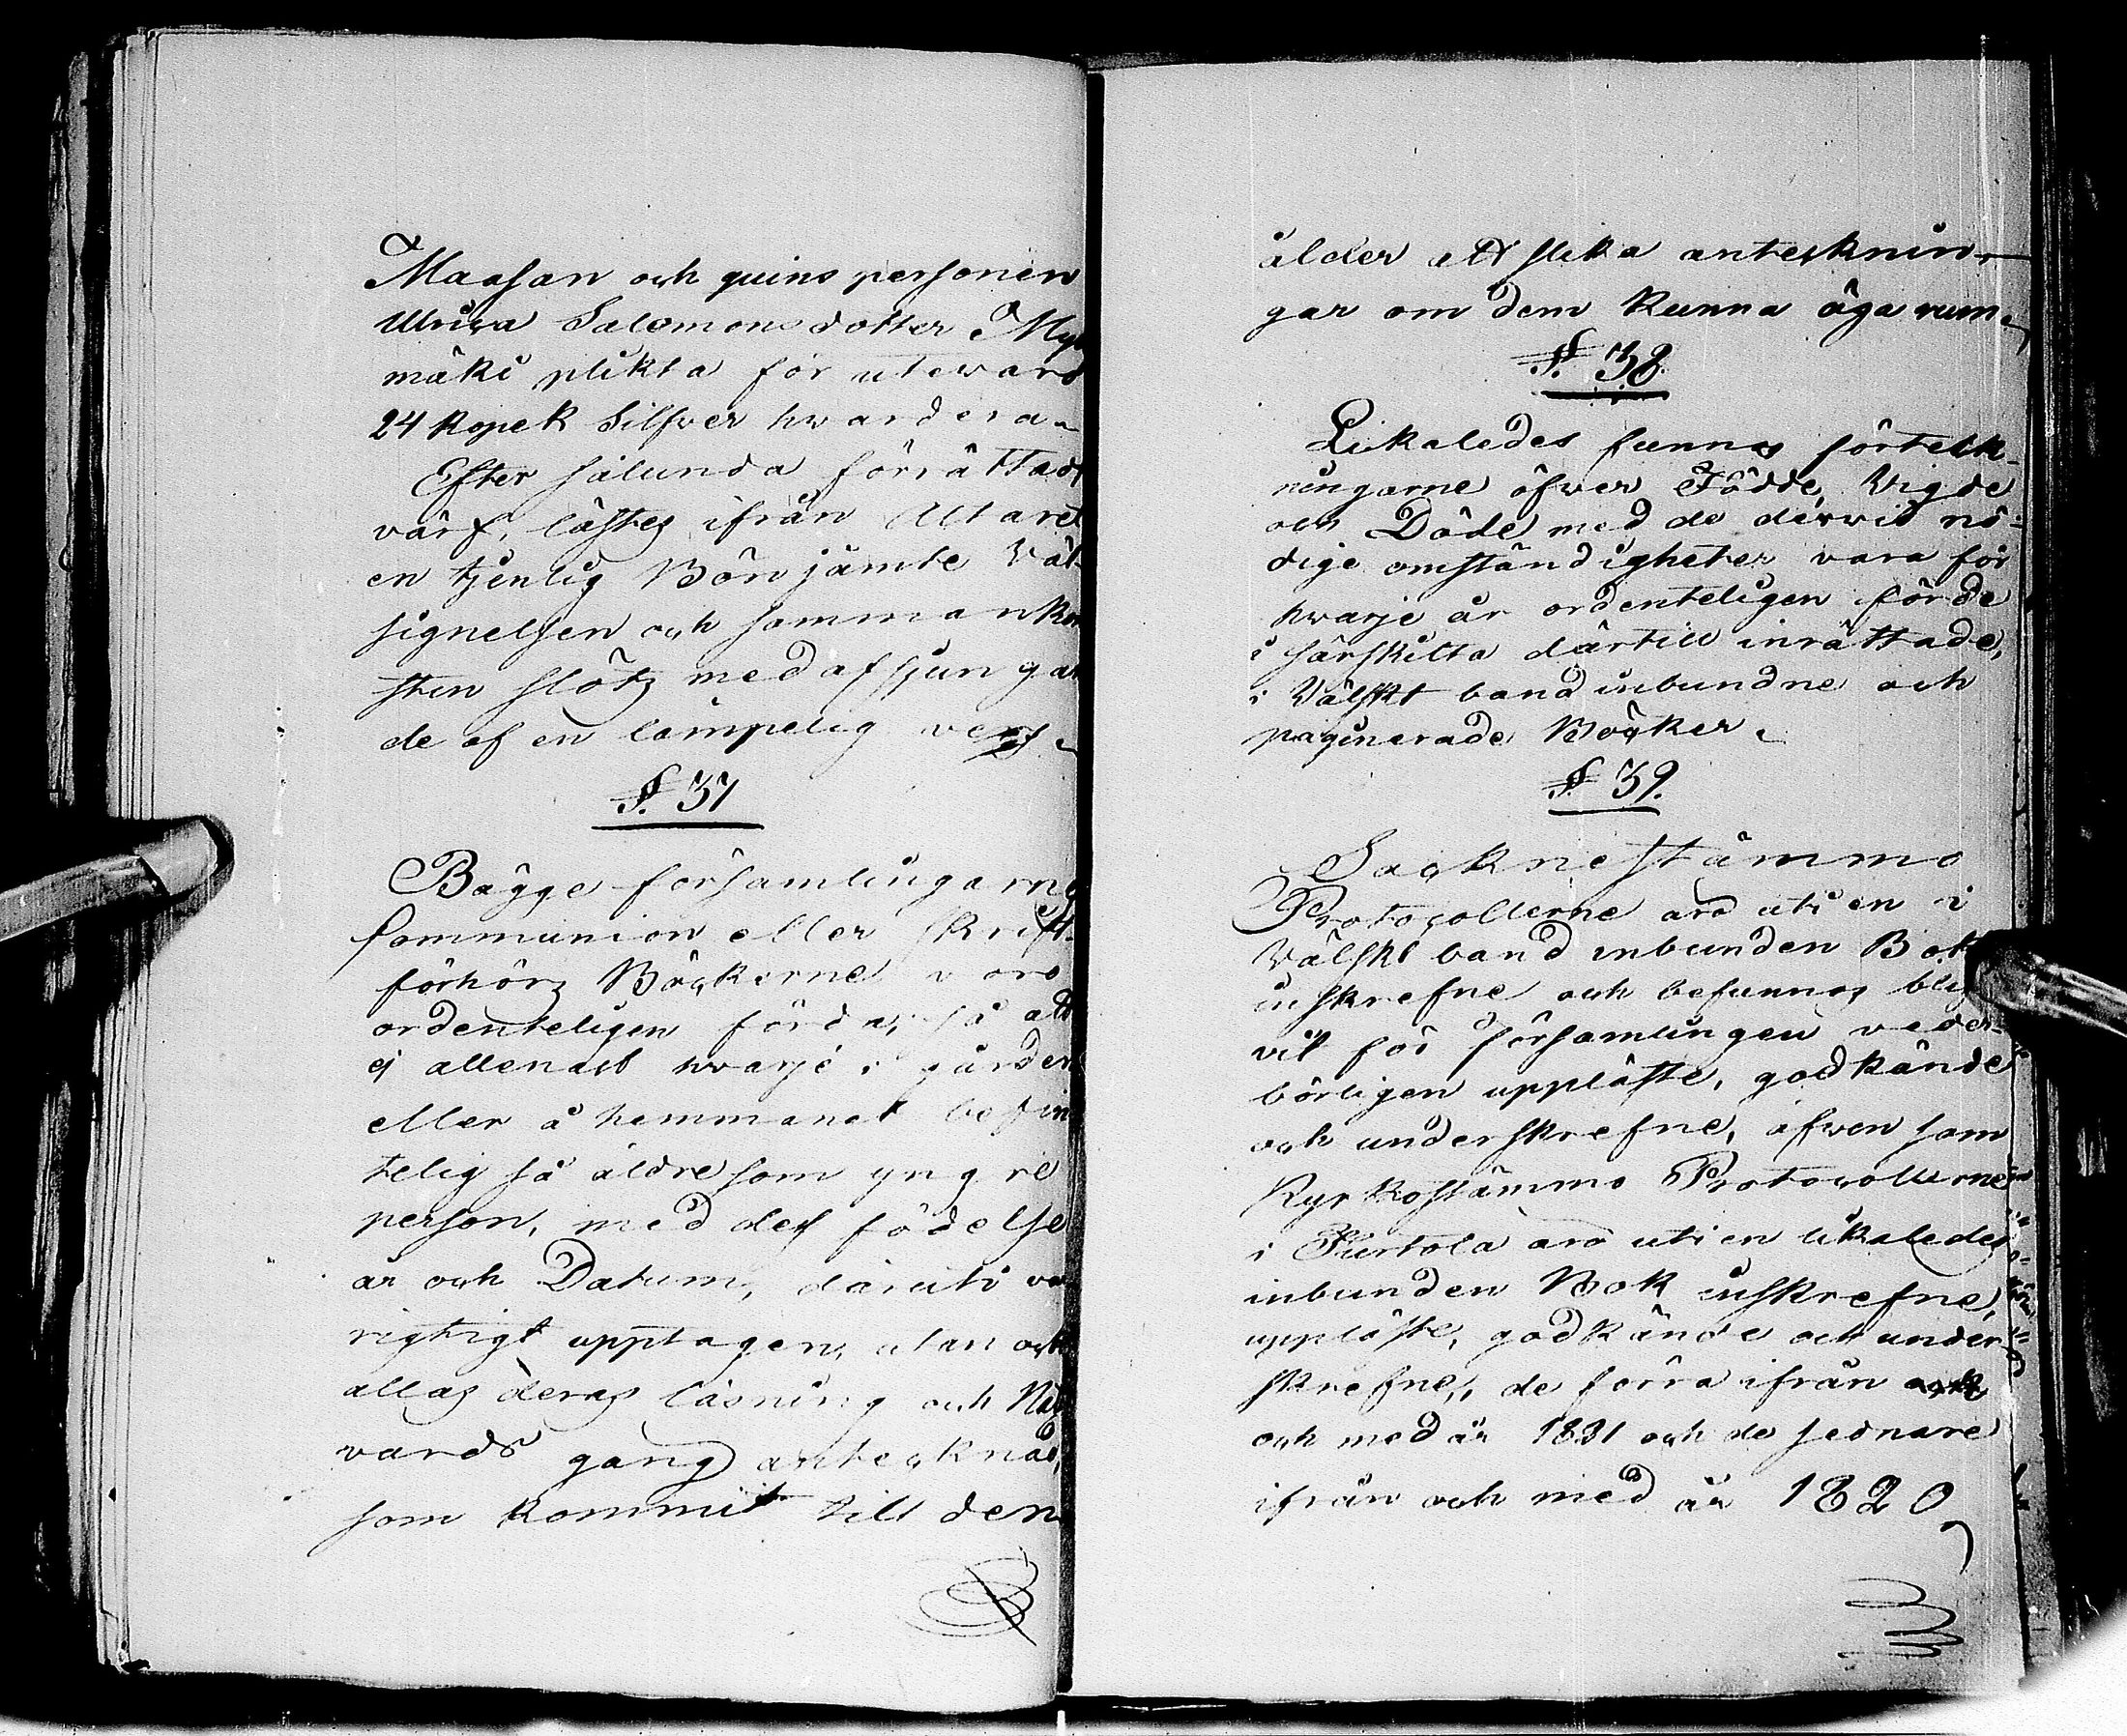 Maasan och quins personen
Ulrica Salomonsdotter
mäki plikta för utevard
24 Kopek Silfver hvardera
Efter sålunda förrättadt
värf, lästes ifrån Altaret
en tjenlig Bön jämte Väl-
signelsen och sammankom
sten slöts med afsjungan
de af en lämpelig vers.
§. 37
Bägge församlingarne
Communion eller Skrift-
förhörs Böckerne voro
ordenteligen förda, så att
ej allenast hvarje i gården
eller å hemmanet befin
telig så äldre som yngre
person, med dess födelse
år och Datum, däruti var
rigtigt upptagen, utan ock
allas deras läsning och Natt
vards gång antecknad,
som kommit till den
ålder att slika antecknin-
gar om dem kunna äga rum.
§. 38.
Likaledes funnos förteck-
ningarne öfver Födde, Vigde
och Döde med de dervid nö-
dige omständigheter vara för
hvarje år ordenteligen förde
i särskilta därtill inrättade,
i Välskt band inbundne och
paginerade Böcker.
§. 39.
Sockne Stämmo
Protocollerne äro uti en i
Välskt band inbunden Bok
inskrefne och befunnos blif
vit för församlingen veder-
börligen uppläste, godkände
och underskrefne, äfven som
Kyrkostämmo Protocollerne
i Turtola äro uti en likaledes
inbunden Bok inskrefne,
uppläste, godkände och under
skrefne, de förra ifrån
och med år 1831 och de sednare
ifrån och med år 1820